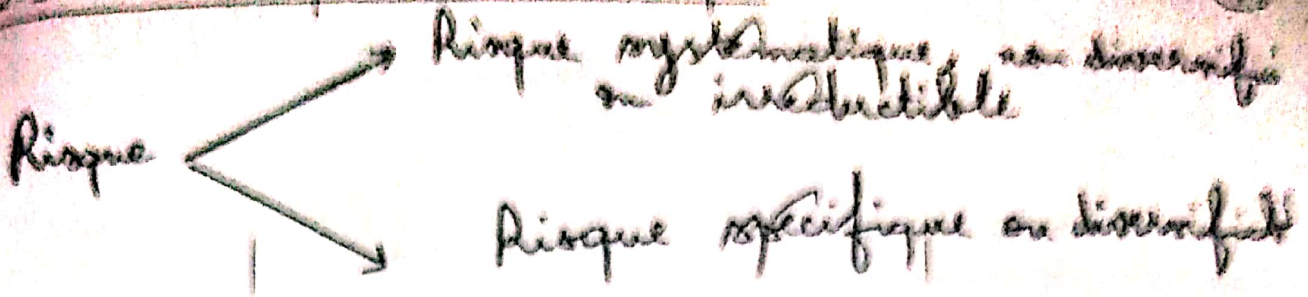 Risque systématique, non diversifi
ou irréductible
Risque
Risque spécifique ou diversifiab